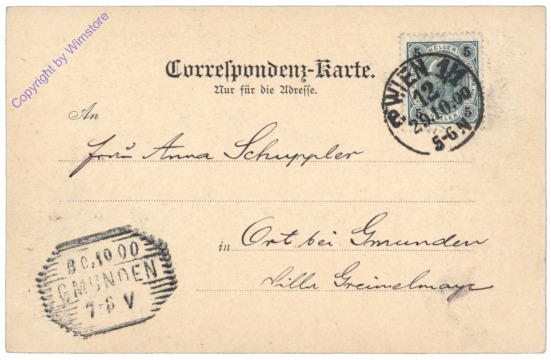 Copyright by Wimstore
5 HELLER 5
WIEN 1/1
12
29.10.00
5-6 N
5 HELLER 5
Correspondenz-Karte.
Nur für die Adresse.
An
Frau Anna Schuppler
in Ort bei Gmunden
Villa Greimelmayr
30.10.00
GMUNDEN
7-8 V